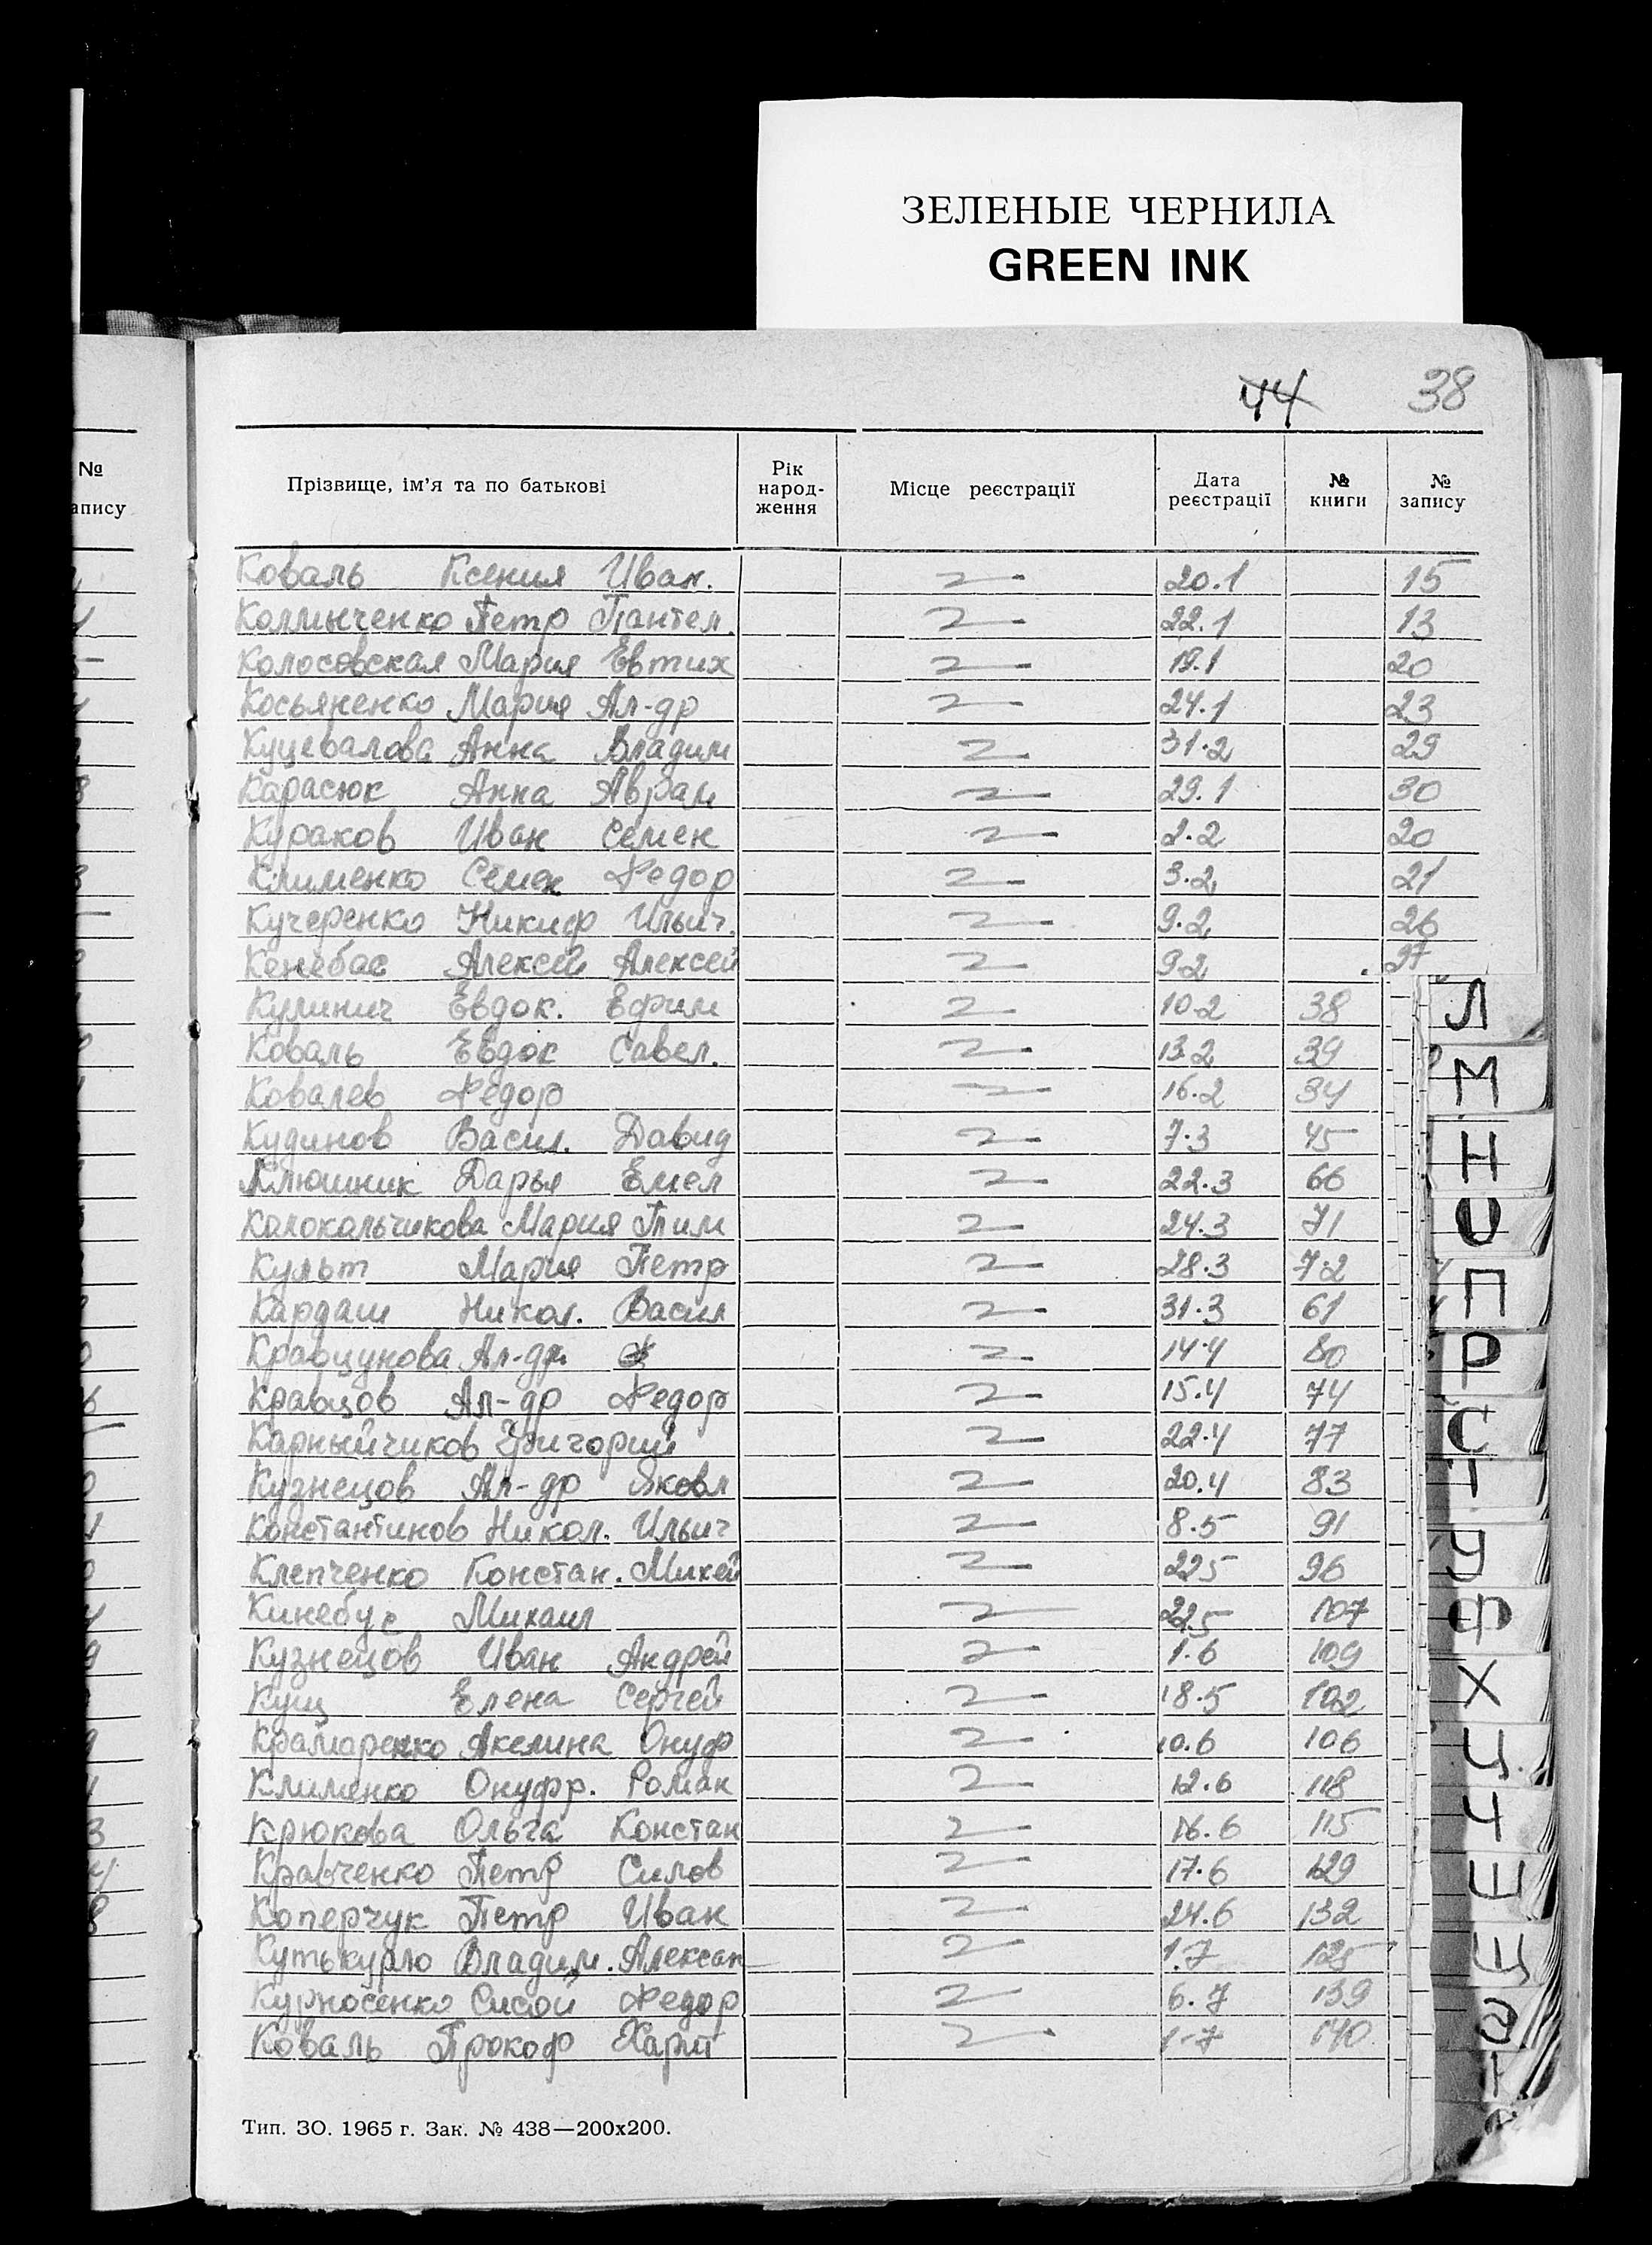 ЗЕЛЕНЫЕ ЧЕРНИЛА
GREEN INK
44 38
№ запису
Прізвище, ім'я та по батькові Рік народ-ження Місце реєстрації Дата реєстрації № книги № запису
Коваль Ксения Иван. 20.1 15
Петр Пантел. 22.1 13
Колосовская Мария Евтих 19.1 20
Косьяненко Мария Ал-др 24.1 23
Куцевалова Анна Владим 31.2 29
Карасюк Анна Аврам 29.1 30
Кураков Иван Семен 2.2 20
Клименко Семен Федор 3.2 21
Кучеренко Никиф Ильич. 9.2 26
Кенебас Алексей Алексей 9.2 27
Кулинич Евдок. Ефим 10.2 38
Коваль Евдок Савел. 13.2 39
Ковалев Федор 16.2 34
Кудинов Васил. Давид 7.3 45
Ключник Дарья Емел 22.3 66
Колокольчикова Мария Тим 24.3 71
Культ Мария Петр 28.3 72
Кардаш Никол. Васил 31.3 61
Кравцунова Ал-др. 14.4 80
Кравцов Ал-др Федор 15.4 74
Карныйчиков Григорий 22.4 77
Кузнецов Ал-др Яковл 20.4 83
Константинов Никол. Ильич 8.5 91
Клепченко Констан. Михей 22.5 96
Кинебус Михаил 22.5 107
Кузнецов Иван Андрей 1.6 109
Кущ Елена Сергей 18.5 102
Крамаренко Акелина Онуф 10.6 106
Клименко Онуфр. Роман 12.6 118
Крюкова Ольга Констан 16.6 115
Кравченко Петр Силов 17.6 129
Коперчук Петр Иван 24.6 132
Кутькурло Владим. Алексан 1.7 125
Курносенко Сисой Федор 6.7 139
Коваль Прокоф Харит 1.7 140
Тип. ЗО. 1965 г. Зак. № 438—200х200.
Л
М
Н
О
П
Р
С
Т
У
Ф
Х
Ц
Ч
Ш
Щ
Э